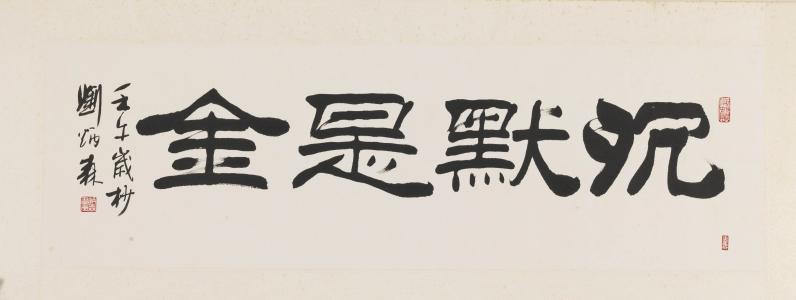 沉默是金
壬午歲杪
劉炳森